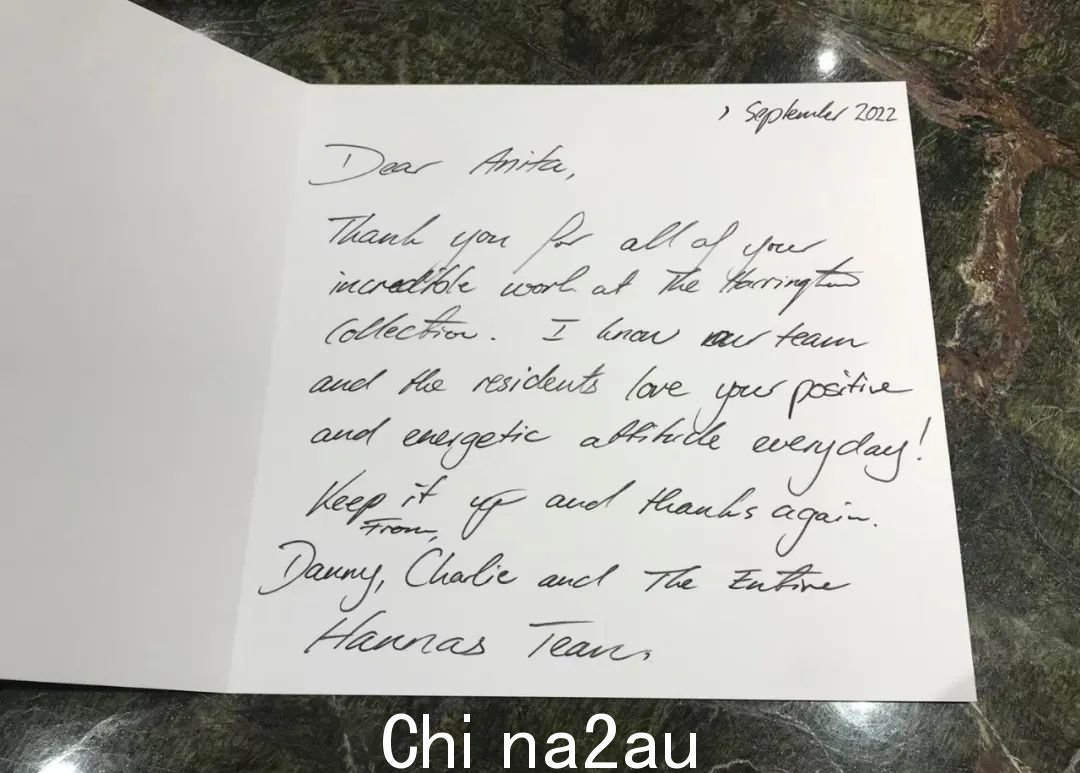 , September 2022
Dear Anita,
Thank you for all of your
incredible work at The Harrington
Collection. I know our team
and the residents love your positive
and energetic attitude everyday!
Keep it up and thanks again.
From,
Danny, Charlie and The Entire
Hannas Team.
China2au